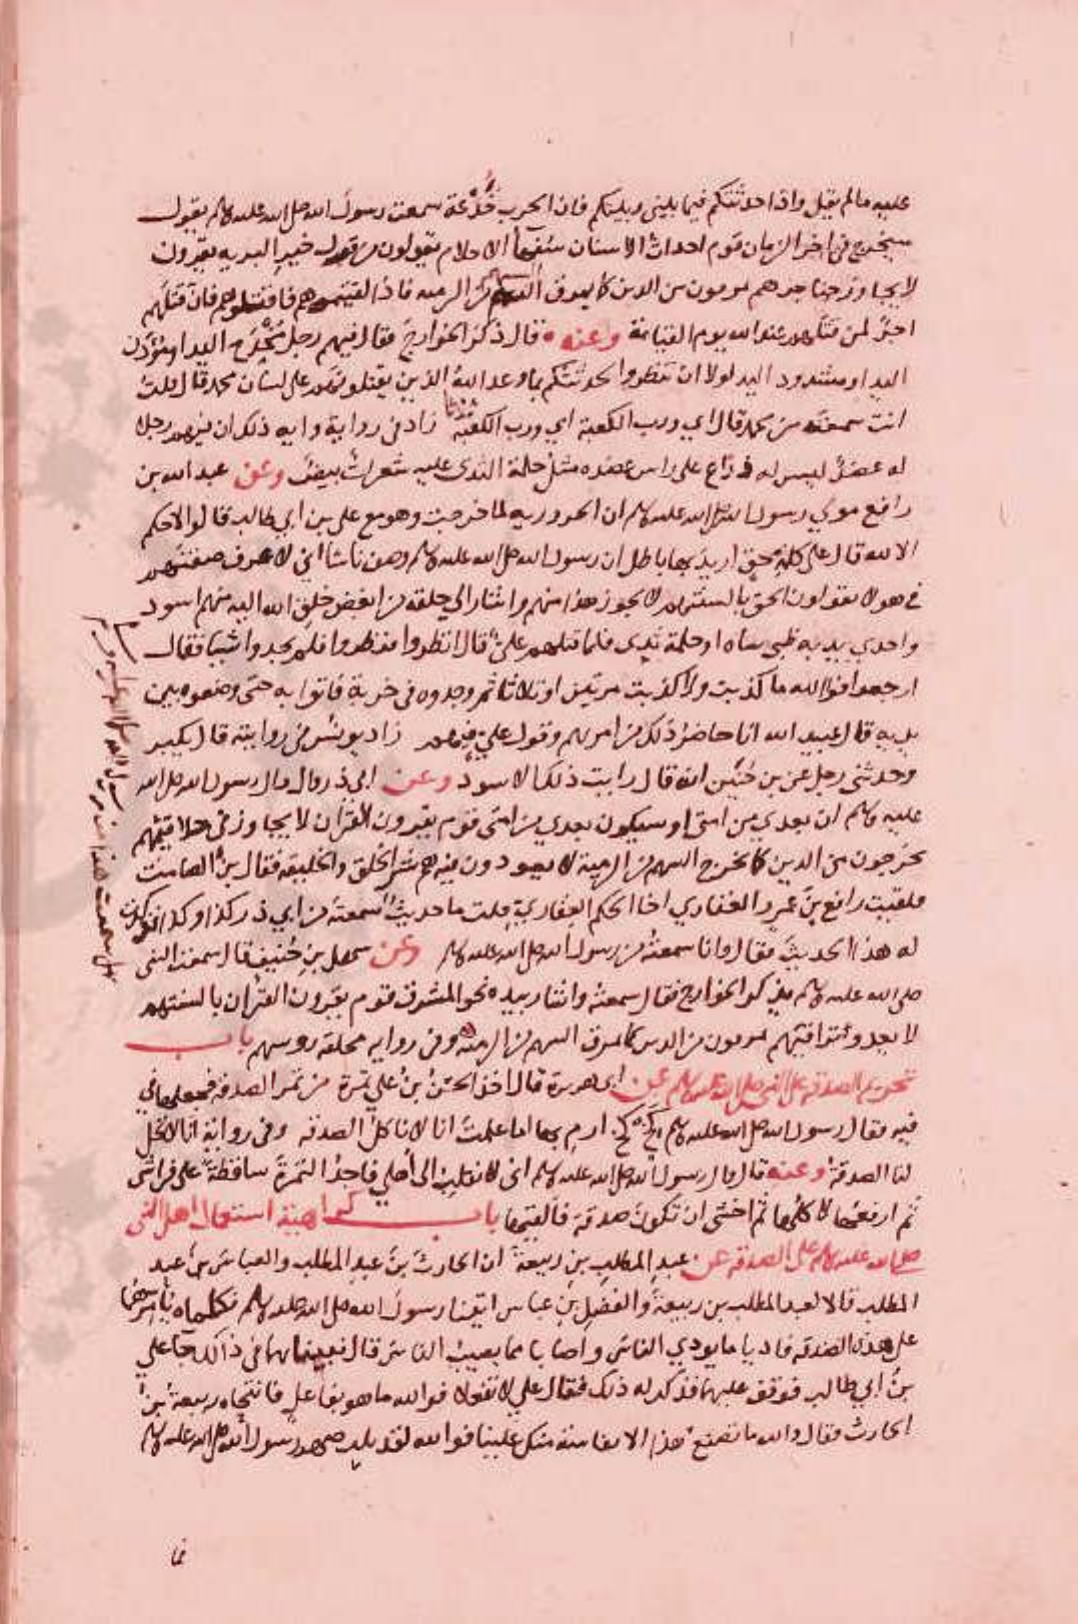 عليه مالم يقل واذا حدثتكم فيما بيني وبينكم فان الحرب خدعة سمعت رسول الله صلى الله عليه وسلم يقول
سيخرج في اخر الزمان قوم احداث الاسنان سفهاء الاحلام يقولون من قول خير البريه يقرون
لا يجاوز حناجرهم يمرقون من الدين كما يمرق السهم من الرميه فاذا لقيتموهم فاقتلوهم فان قتلهم
اجرًا لمن قتلهم عند الله يوم القيامة وعنه قال ذكر الخوارج فقال فيهم رجل مخدج اليد او مؤدن
اليد او مثدود اليد لولا ان تنظروا لحدثتكم بما وعد الله الذين يقتلونهم على لسان محمد قال قلت
انت سمعته من محمد قال اي ورب الكعبة اي ورب الكعبة ثلاثا زاد في رواية واية ذلك ان فيهم رجلا
له عضد ليس له ذراع على راس عضده مثل حلمة الثدى عليه شعرات بيض وعن عبد الله بن
رافع مولى رسول الله صلى الله عليه وسلم ان الحروريه لما خرجت وهو مع علي بن ابي طالب قالوا لاحكم
الا لله قال علي كلمة حق اريد بها باطل ان رسول الله صلى الله عليه وسلم وصف ناسا اني لاعرف صفتهم
في هولا يقولون الحق بالسنتهم لا يجوز هذا منهم واشار الى حلقه من ابغض خلق الله اليه منهم اسود
واحدي يديه طبى شاه او حلمة ثدي فلما قتلهم علي قال انظروا فنظروا فلم يجدوا شيا فقال
ارجعوا فوالله ما كذبت ولا كذبت مرتين او ثلاثا ثم وجدوه في خربة فاتوا به حتى وضعوه بين
يديه قال عبيد الله انا حاضر ذلك من امرهم وقول علي فيهم زاد يونس في روايته قال بكير
وحدثني رجل عن بن حنين انه قال رايت ذلك الاسود وعن ابي ذر قال قال رسول الله صلى الله
عليه وسلم ان بعدي من امتي او سيكون بعدي من امتي قوم يقرون القران لا يجاوز حلاقيمهم
يخرجون من الدين كما يخرج السهم من الرمية لا يعودون فيه هم شر الخلق والخليقة فقال بن الصامت
فلقيت رافع بن عمرو الغفاري اخا الحكم الغفاري قلت ما حديث سمعته من ابي ذر كذا وكذا فذكرت
له هذا الحديث فقال وانا سمعته من رسول الله صلى الله عليه وسلم وعن سهل بن حنيف قال سمعت النبى
صلى الله عليه وسلم يذكر الخوارج فقال سمعته واشار بيده نحو المشرق قوم يقرون القران بالسنتهم
لا يعدوا تراقيهم يمرقون من الدين كما يمرق السهم من الرمية وفي رواية محلقه روسهم باب
تحريم الصدقة على النبى صلى الله عليه وسلم عن ابى هريرة قال اخذ الحسن بن علي تمرة من تمر الصدقه فجعلها في
فيه فقال رسول الله صلى الله عليه وسلم كخ كخ ارم بها اما علمت انا لا ناكل الصدقه وفى رواية انا لا تحل
لنا الصدقة وعنه قال قال رسول الله صلى الله عليه وسلم انى لانقلب الى اهلي فاجد التمرة ساقطة على فراشى
ثم ارفعها لاكلها ثم اخشى ان تكون صدقة فالقيها باب كراهية استعمال اهل النبى
صلى الله عليه وسلم على الصدقه عن عبد المطلب بن ربيعة ان الحارث بن عبد المطلب والعباس بن عبد
المطلب قالا لعبد المطلب بن ربيعة والفضل بن عباس ايتيا رسول الله صلى الله عليه وسلم فكلماه يامركما
على هذه الصدقه فاديا ما يودي الناس واصابا مما يصيب الناس قال فبينما هما في ذلك جا علي
بن ابي طالب فوقف عليهما فذكرا له ذلك فقال علي لا تفعلا فوالله ما هو بفاعل فانتحاه ربيعة بن
الحارث فقال والله ما تصنع هذا الا نفاسة منك علينا فوالله لقد نلت صهر رسول الله صلى الله عليه وسلم
فما